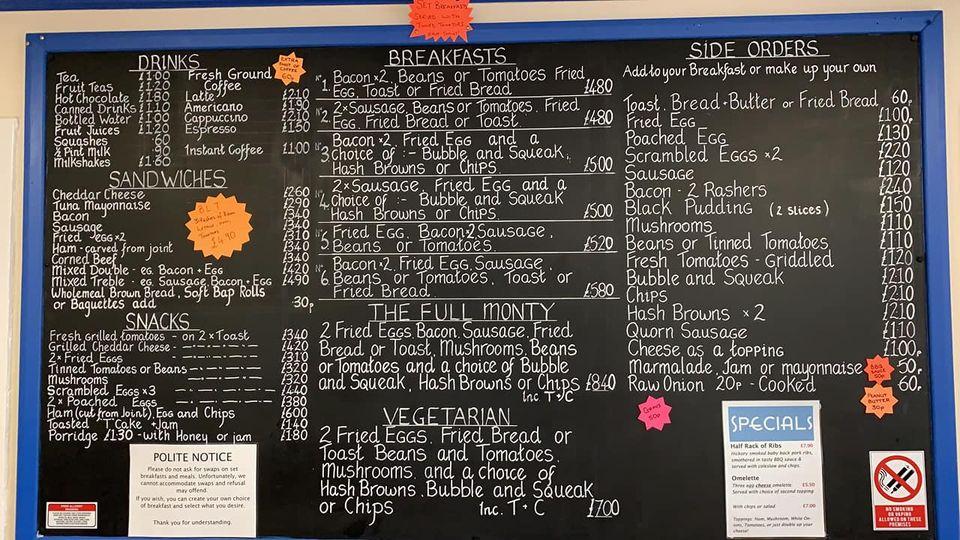 SET BREAKFAST
SERVED WITH
TINNED TOMATOES
DRINKS
Tea £1.00
Fruit Teas £1.20
Hot Chocolate £1.80
Canned Drinks £1.10
Bottled Water £1.00
Fruit Juices £1.20
Squashes .60
½ Pint Milk .90
Milkshakes £1.80
Fresh Ground
Coffee
Latte £2.10
Americano £1.90
Cappuccino £2.10
Espresso £1.50
Instant Coffee £1.00
EXTRA
SHOT OF
COFFEE
60p
SANDWICHES
Cheddar Cheese £2.60
Tuna Mayonnaise £2.90
Bacon £3.40
Sausage £3.40
Fried egg x2 £3.10
Ham - carved from joint £3.40
Corned Beef £3.40
Mixed Double - eg. Bacon + Egg £4.20
Mixed Treble - eg. Sausage, Bacon + Egg £4.90
Wholemeal Brown Bread, Soft Bap Rolls
or Baguettes add 30p
BLT
£4.90
SNACKS
Fresh grilled tomatoes - on 2 x Toast £3.40
Grilled Cheddar Cheese £4.20
2 x Fried Eggs £3.10
Tinned Tomatoes or Beans £3.20
Mushrooms £3.20
Scrambled Eggs x3 £4.40
2 x Poached Eggs £3.80
Ham (cut from Joint), Egg and Chips £6.00
Toasted T'Cake + Jam £1.40
Porridge £1.30 - with Honey or jam £1.80
POLITE NOTICE
Please do not ask for swaps on set
breakfasts and meals. Unfortunately, we
cannot accommodate swaps and refusal
may offend.
If you wish, you can create your own choice
of breakfast and select what you desire.
Thank you for understanding.
BREAKFASTS
No 1. Bacon x2, Beans or Tomatoes Fried
Egg, Toast or Fried Bread £4.80
No 2. 2 x Sausage, Beans or Tomatoes, Fried
Egg, Fried Bread or Toast. £4.80
No 3. Bacon x2, Fried Egg and a
choice of :- Bubble and Squeak,
Hash Browns or Chips £5.00
No 4. 2 x Sausage, Fried Egg and a
choice of :- Bubble and Squeak
Hash Browns or Chips £5.00
No 5. Fried Egg, Bacon, 2 Sausage,
Beans or Tomatoes. £5.20
No 6. Bacon x2, Fried Egg, Sausage,
Beans or Tomatoes, Toast or
Fried Bread. £5.80
THE FULL MONTY
2 Fried Eggs, Bacon, Sausage, Fried
Bread or Toast, Mushrooms, Beans
or Tomatoes and a choice of Bubble
and Squeak, Hash Browns or Chips £8.40
Inc T + C
VEGETARIAN
2 Fried Eggs, Fried Bread or
Toast Beans and Tomatoes,
Mushrooms and a choice of
Hash Browns, Bubble and Squeak
or Chips Inc. T + C £7.00
SIDE ORDERS
Add to your Breakfast or make up your own
Toast, Bread + Butter or Fried Bread 60p
Fried Egg £1.00
Poached Egg £1.30
Scrambled Eggs x2 £2.20
Sausage £1.20
Bacon - 2 Rashers £2.40
Black Pudding (2 slices) £1.50
Mushrooms £1.10
Beans or Tinned Tomatoes £1.10
Fresh Tomatoes - Griddled £1.20
Bubble and Squeak £2.10
Chips £2.10
Hash Browns x2 £2.10
Quorn Sausage £1.10
Cheese as a topping £1.00
Marmalade, Jam or mayonnaise 50p
Raw Onion 20p - Cooked 60p
BBQ
SAUCE
50p
PEANUT
BUTTER
50p
50p
SPECIALS
Half Rack of Ribs £7.90
Hickory smoked baby back pork ribs,
smothered in tasty BBQ sauce &
served with coleslaw and chips.
Omelette
Three egg cheese omelette £5.50
Served with choice of second topping
With chips or salad £7.00
NO SMOKING
OR VAPING
ALLOWED ON THESE
PREMISES